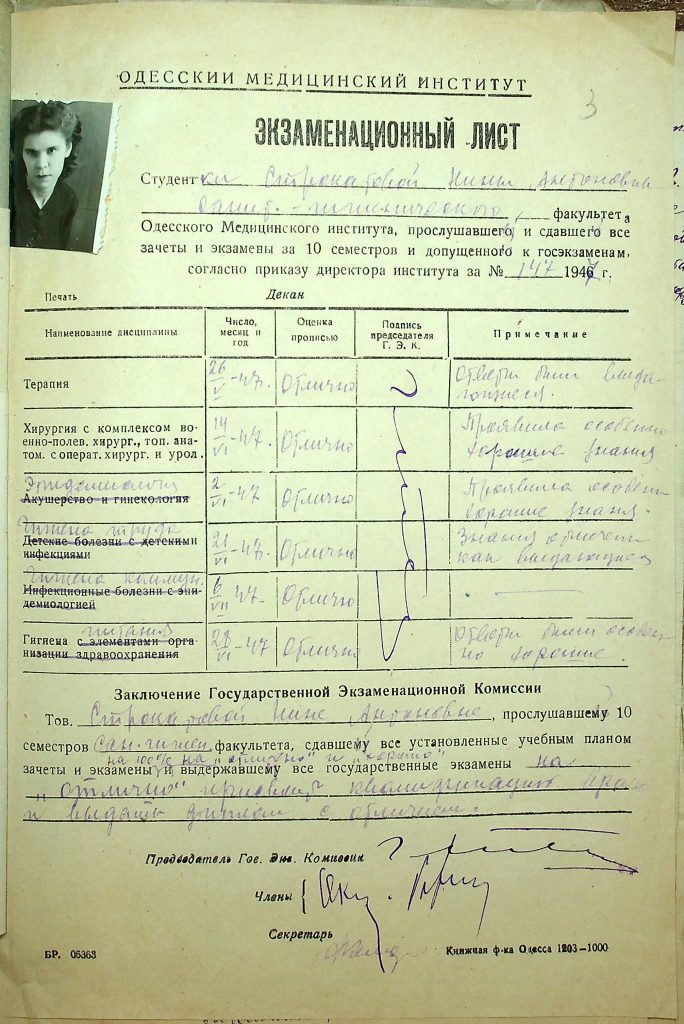 3
ОДЕССКИЙ МЕДИЦИНСКИЙ ИНСТИТУТ
ЭКЗАМЕНАЦИОННЫЙ ЛИСТ
Студентки Строкатовой Нины Антоновны
Санит.-гигиенического факультета
Одесского Медицинского института, прослушавшего и сдавшего все
зачеты и экзамены за 10 семестров и допущенного к госэкзаменам,
согласно приказу директора института за № 147 1947 г.
Печать Декан
Наименование дисциплины Число, месяц и год Оценка прописью Подпись председателя Г. Э. К. Примечание
Терапия 26/V-47. Отлично Ответы были выдающиеся.
Хирургия с комплексом во-
енно-полев. хирург., топ. ана-
том. с операт. хирург. и урол. 14/VI-47. Отлично Проявила особенно хорошие знания
Эпидемиология
Акушерство и гинекология 2/VI-47 Отлично Проявила особен. хорошие знания.
Гигиена труда
Детские болезни с детскими
инфекциями 21/VI-47. Отлично Знания отмечены как выдающиеся
Гигиена коммун.
Инфекционные болезни с эпи-
демиологией 6/VII-47. Отлично
питания
Гигиена с элементами орга-
низации здравоохранения 28/VI-47 Отлично Ответы были особенно хорошие.
Заключение Государственной Экзаменационной Комиссии
Тов. Строкатовой Нине Антоновне, прослушавшему 10
семестров сан.-гигиен. факультета, сдавшему все установленные учебным планом
на 100% на „отлично" и „хорошо"
зачеты и экзамены и выдержавшему все государственные экзамены на
„отлично" присвоить квалификацию врача
и выдать диплом с отличием.
Председатель Гос. Экз. Комиссии
Члены
Секретарь
БР. 06363 Книжная ф-ка Одесса 1203—1000